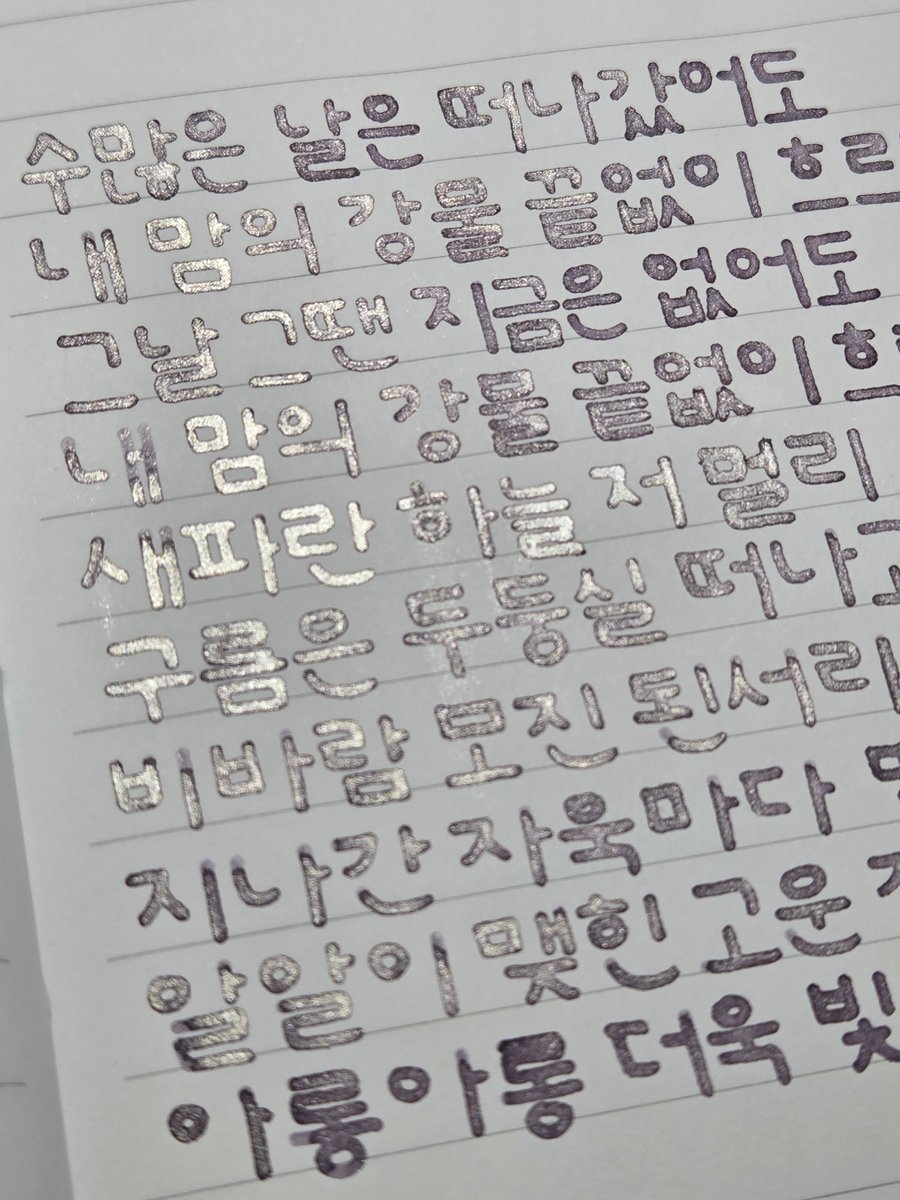 수많은 날은 떠나갔어도
내 맘의 강물 끝없이 흐르
그날 그땐 지금은 없어도
내 맘의 강물 끝없이
새파란 하늘 저 멀리
구름은 두둥실 떠나
비바람 모진 된서리
지나간 자욱마다
알알이 맺힌 고운
아롱아롱 더욱 빛